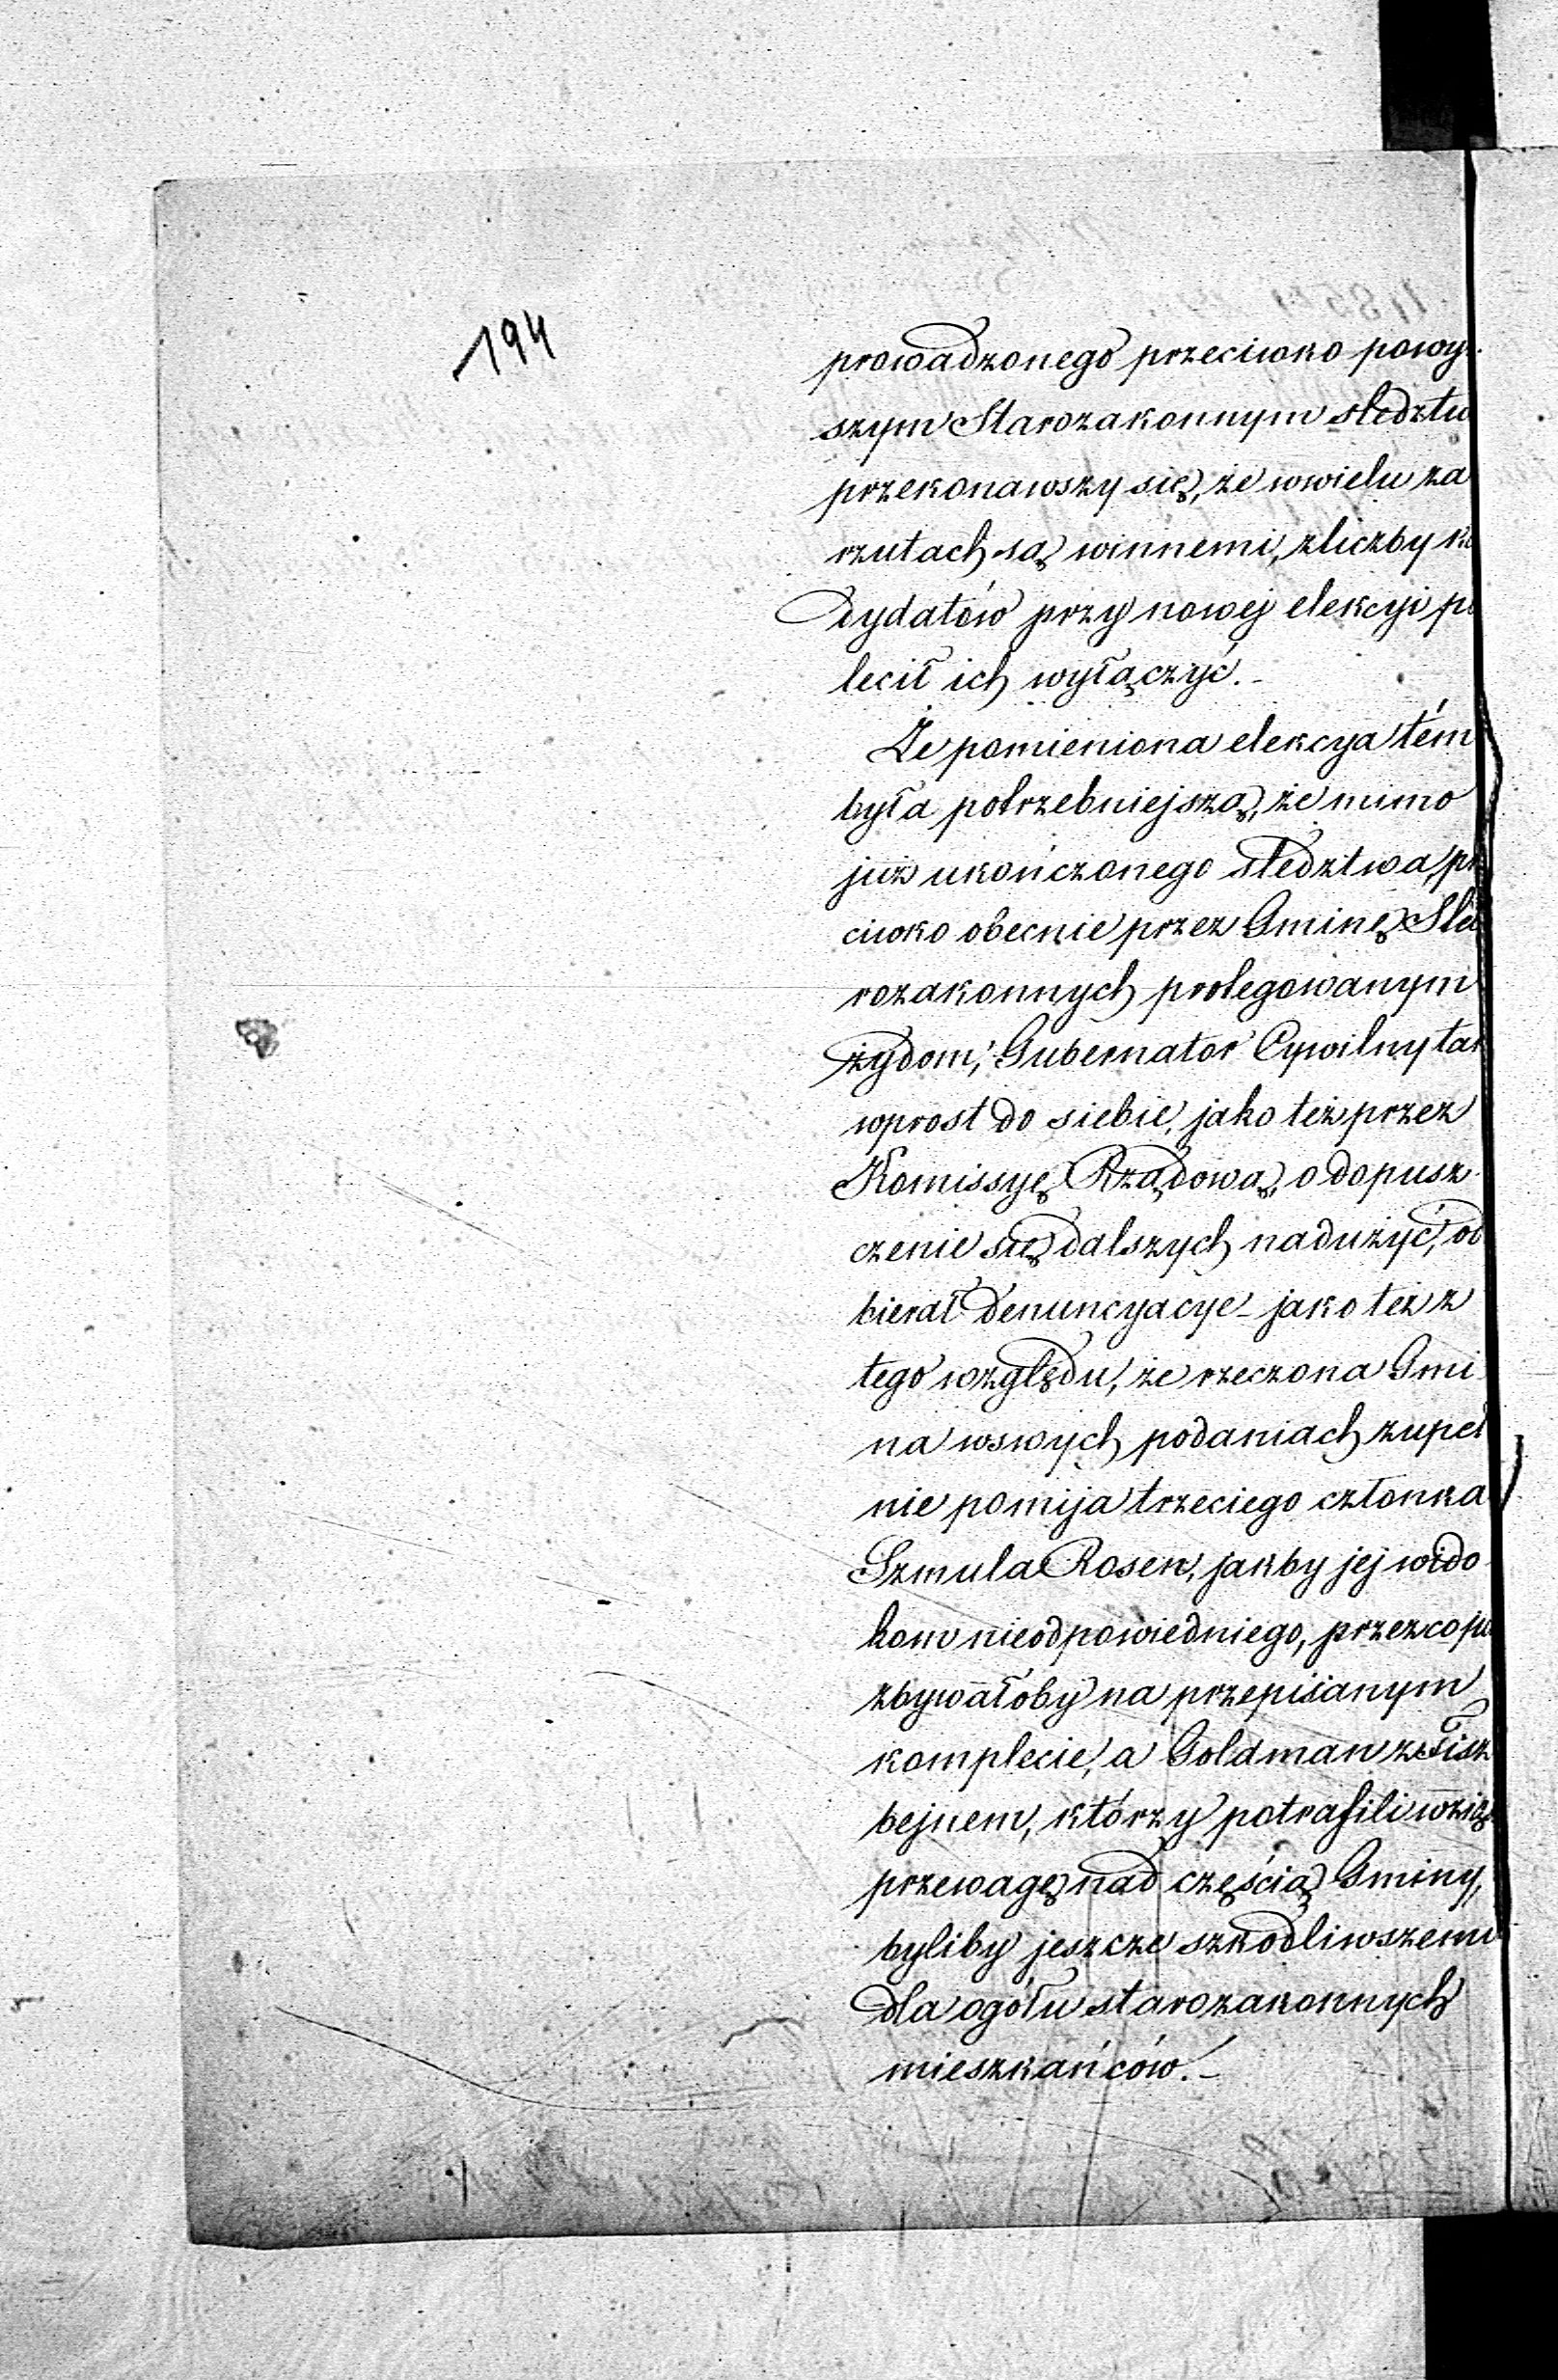 194
prowadzonego przeciwko powy-
szym Starozakonnym sledztw
przekonawszy się, że wwielu za
rzutach są winnemi, zliczby ka
dydatów przy nowej elekcyi po
lecił ich wyłączyć.-
Że pomieniona elekcya tém
była potrzebniejszą, że mimo
już ukończonego sledztwa, prz
ciwko obecnie przez Gminę Sta
rozakonnych protegowanym
żydom, Gubernator Cywilny tak
wprost do siebie, jako też przez
Komissyę Rządową, o dopusz-
czenie się dalszych nadużyć, od
bierał denuncyacye - jako też z
tego względu, że rzeczona Gmi
na wswych podaniach zupeł
nie pomija trzeciego członka
Szmula Rosen, jakby jej wido-
kom nieodpowiedniego, przez co ju
zbywałoby na przepisanym
komplecie, a Goldman z Fisz
bejnem, którzy potrafili wzią
przewagę nad częścią Gminy,
byliby jeszcze szkodliwszemi
dla ogółu starozakonnych
mieszkańców.-